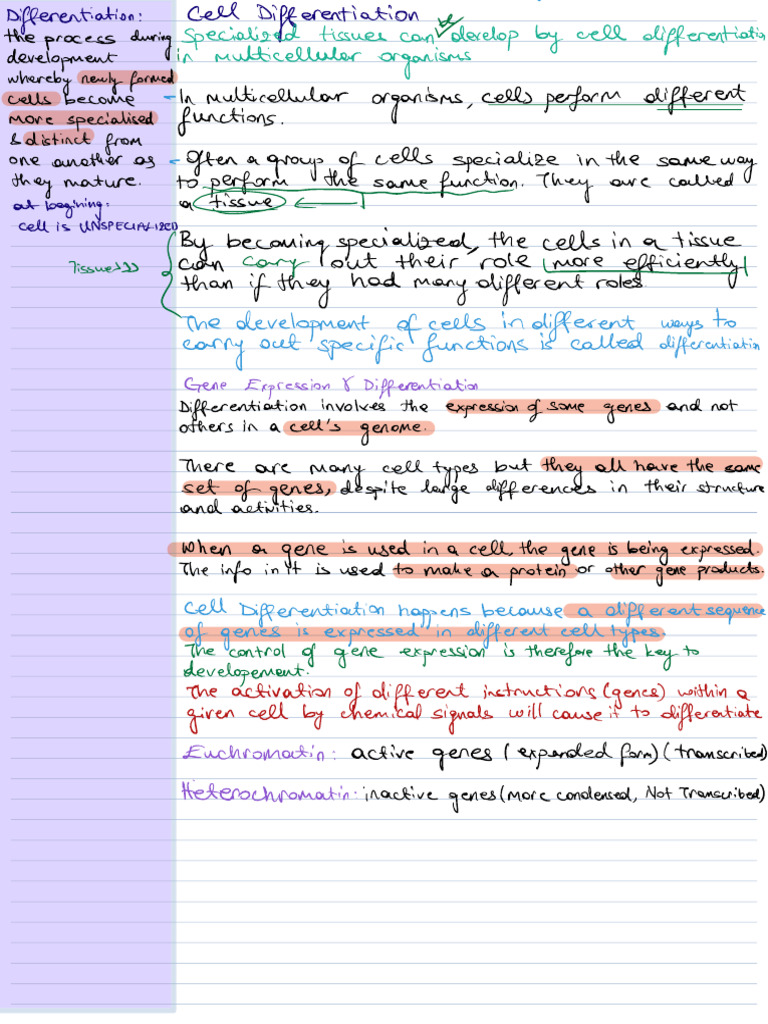 Differentiation:
the process during
development
whereby newly formed
cells become
more specialised
& distinct from
one another as
they mature.
at begining:
cell is UNSPECIALIZED
Tissue
Cell Differentiation
Specialized tissues can develop by cell differentiation
in multicellular organisms
- In multicellular organisms, cells perform different
functions.
- Often a group of cells specialize in the same way
to perform the same function. They are called
a tissue
By becoming specialized, the cells in a tissue
can cary out their role more efficiently
than if they had many different roles
The development of cells in different ways to
carry out specific functions is called differentiation
Gene Expression & Differentiation
Differentiation involves the expression of some genes and not
others in a cell's genome.
There are many cell types but they all have the same
set of genes, despite large differences in their structure
and activities.
When a gene is used in a cell, the gene is being expressed.
The info in it is used to make a protein or other gene products.
Cell Differentiation happens because a different sequence
of genes is expressed in different cell types.
The control of gene expression is therefore the key to
developement.
The activation of different instructions (genes) within a
given cell by chemical signals will cause it to differentiate
Euchromatin: active genes (expanded form) (transcribed)
Heterochromatin: inactive genes (more condensed, Not Transcribed)